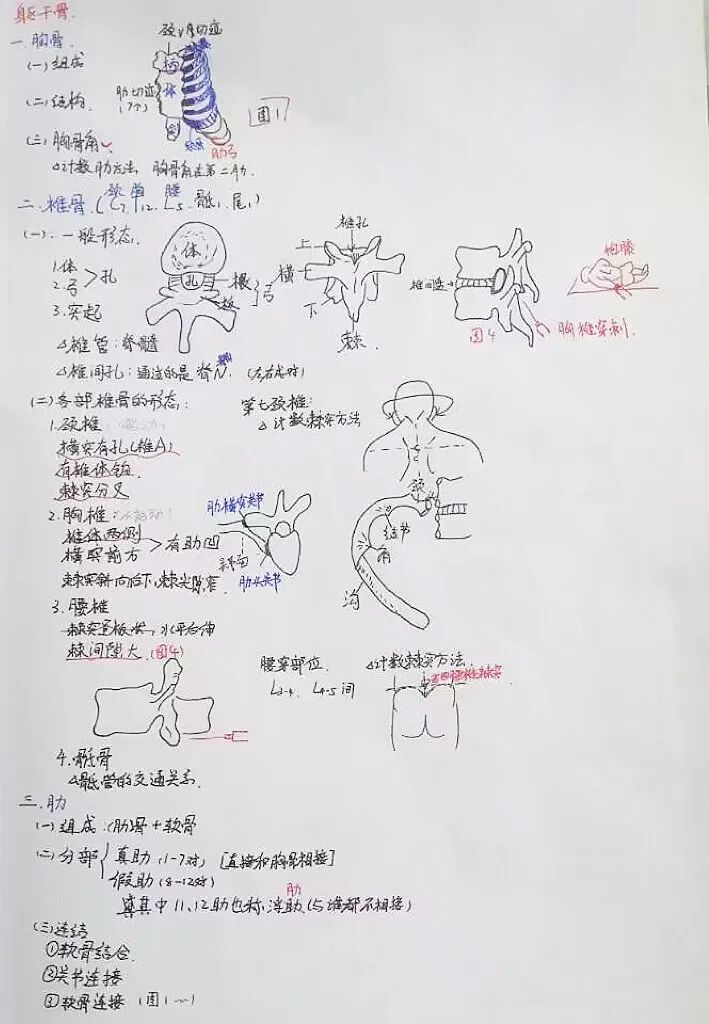 躯干骨.
一.胸骨.
颈V 切迹
(一)组成
柄
体
肋切迹
(7个)
(二)结构.
图1
肋弓
(三)胸骨角
△计数肋方法, 胸骨角连第二肋.
颈 胸 腰
二.椎骨.(C7.T12.L5.骶1.尾1)
(一).一般形态.
椎孔
上
体
孔
根
板
弓
横
下
棘
椎间隙
图4
抱膝
胸椎穿刺
1.体
2.弓
>孔
3.突起
△椎管:脊髓
△椎间孔:通过的是脊N. (左右成对)
(二)各部椎骨的形态:
第七颈椎:
△计数棘突方法
1.颈椎
横突有孔(椎A)
有椎体钩
棘突分叉
颈
结节
角
沟
2.胸椎
肋横突关节
椎体两侧
横突前方
>有肋凹
肋头关节
棘突斜向后下,棘尖隙窄.
3.腰椎
棘突呈板状,水平后伸
棘间隙大.(图4)
腰穿部位.
L3-4. L4-5间
△计数棘突方法.
第四腰椎棘突
4.骶骨
△骶管的交通关系.
三.肋
(一)组成:肋骨+软骨
(二)分部
真肋(1-7对) [直接和胸骨相接]
假肋(8-12对)
肋
其中11、12肋也称浮肋(与谁都不相接)
(三)连结
①软骨结合.
②关节连接
③软骨连接 (图1~)